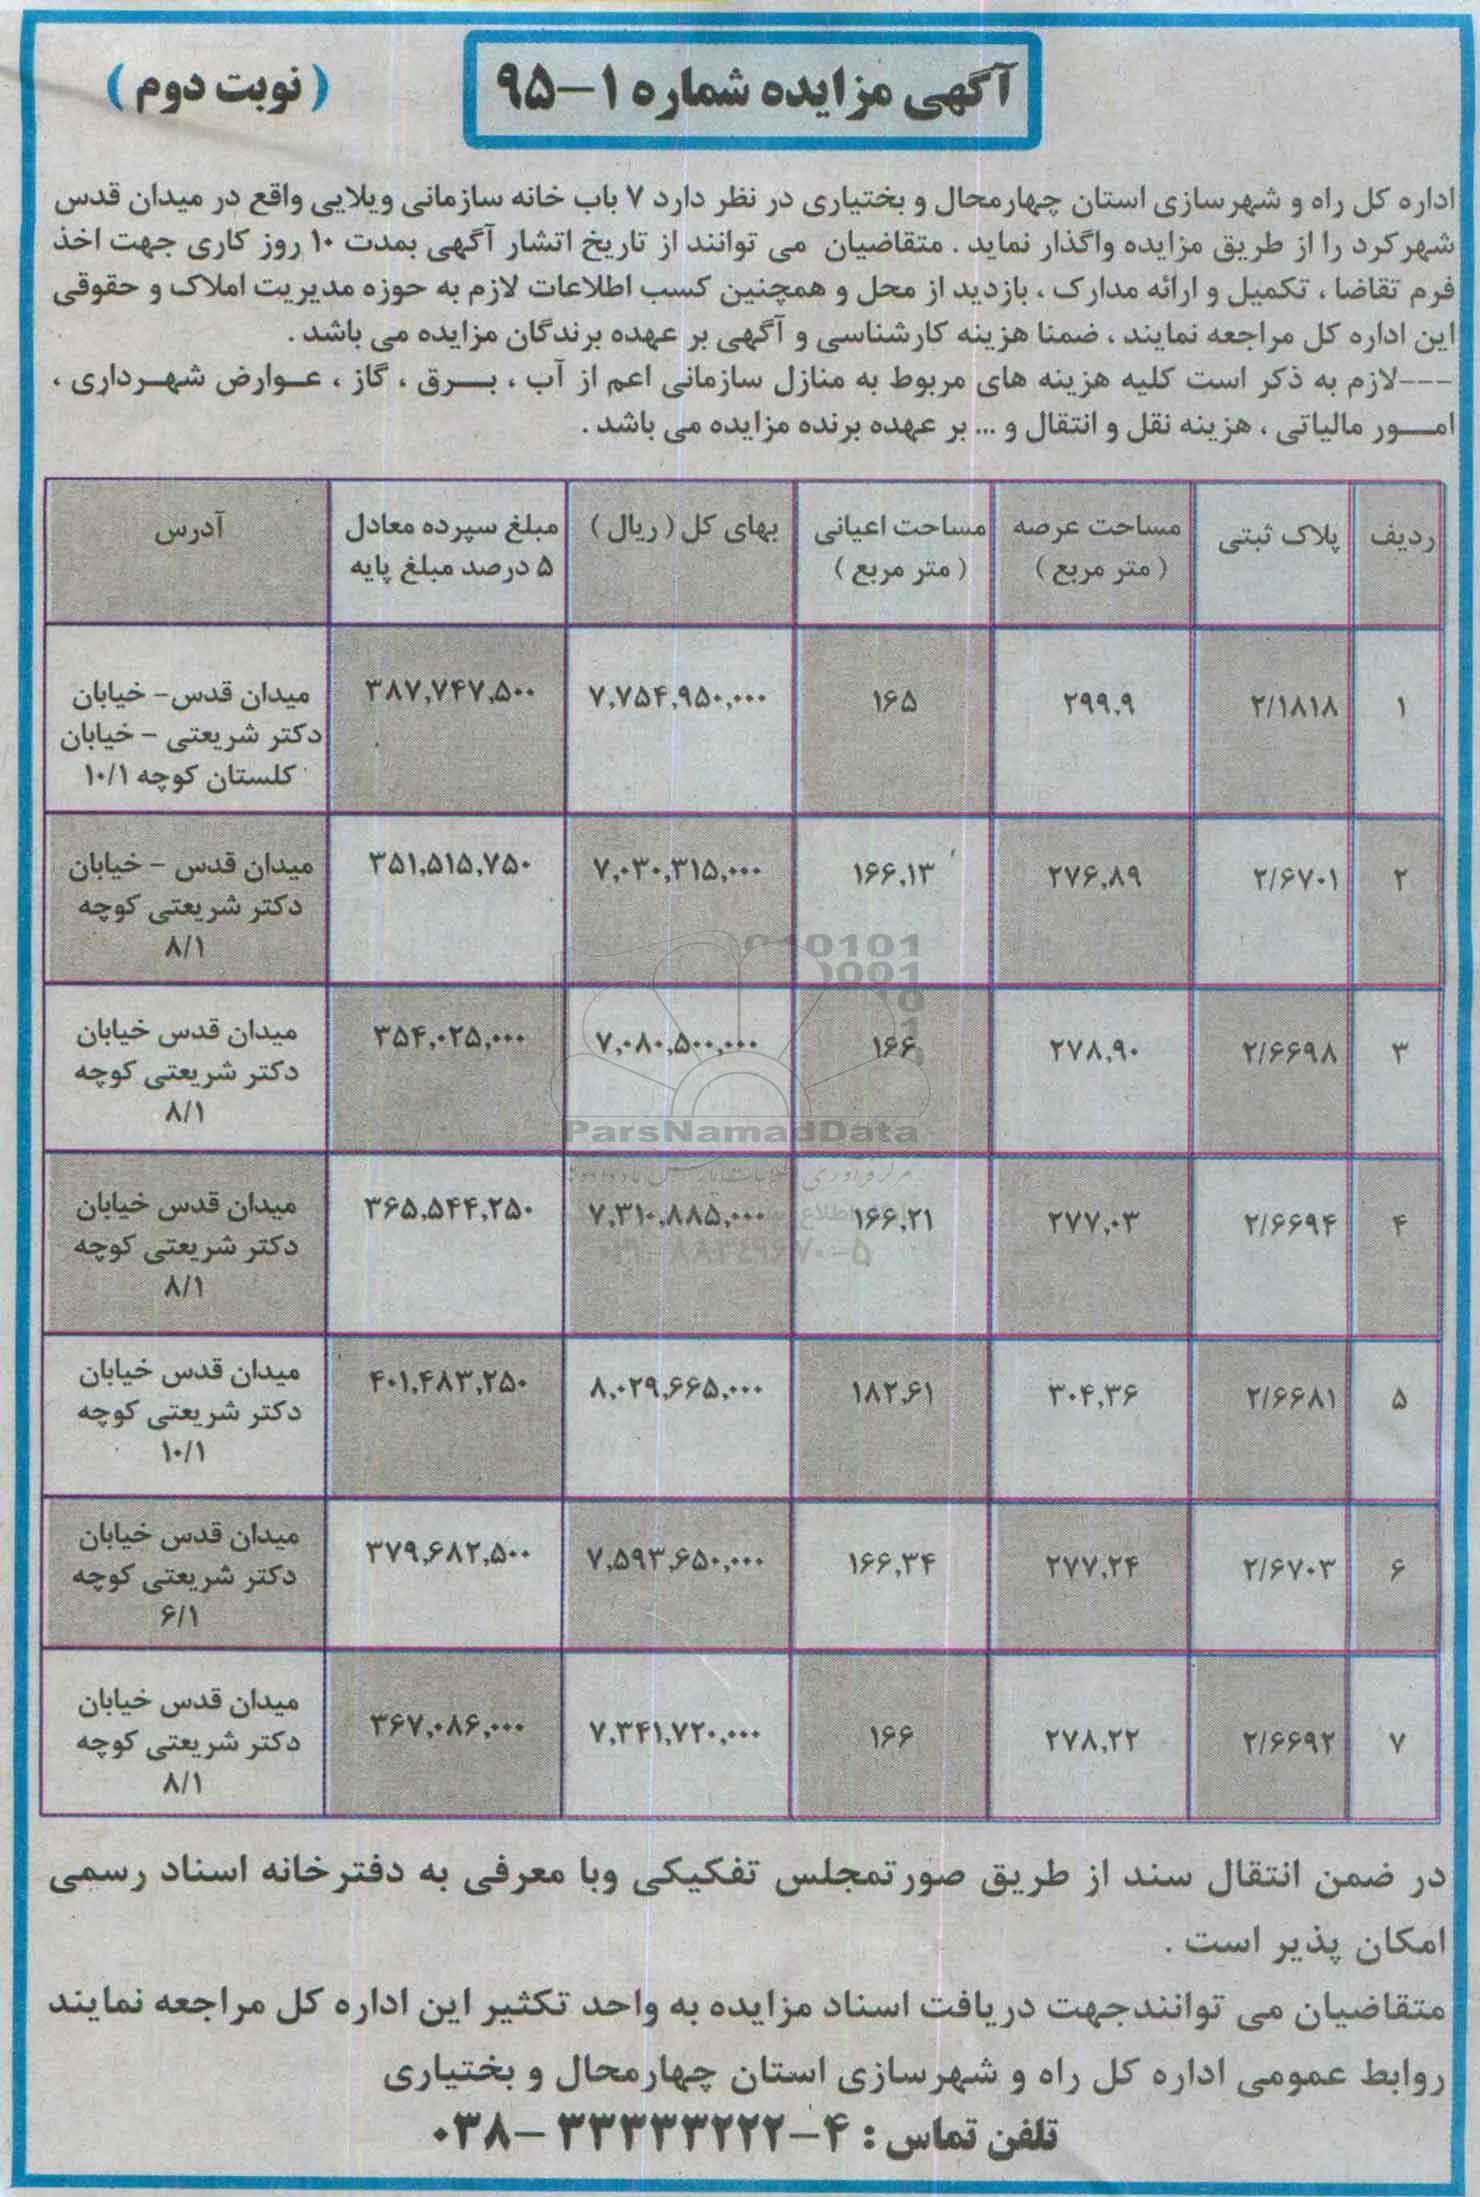 آگهی مزایده شماره ۱–۹۵
( نوبت دوم )
اداره کل راه و شهرسازی استان چهارمحال و بختیاری در نظر دارد ۷ باب خانه سازمانی ویلایی واقع در میدان قدس
شهرکرد را از طریق مزایده واگذار نماید . متقاضیان می توانند از تاریخ اتشار آگهی بمدت ۱۰ روز کاری جهت اخذ
فرم تقاضا ، تکمیل و ارائه مدارک ، بازدید از محل و همچنین کسب اطلاعات لازم به حوزه مدیریت املاک و حقوقی
این اداره کل مراجعه نمایند ، ضمنا هزینه کارشناسی و آگهی بر عهده برندگان مزایده می باشد .
---لازم به ذکر است کلیه هزینه های مربوط به منازل سازمانی اعم از آب ، بـــرق ، گاز ، عـوارض شهـرداری ،
امـــور مالیاتی ، هزینه نقل و انتقال و ... بر عهده برنده مزایده می باشد .
ردیف | پلاک ثبتی | مساحت عرصه ( متر مربع ) | مساحت اعیانی ( متر مربع ) | بهای کل ( ریال ) | مبلغ سپرده معادل ۵ درصد مبلغ پایه | آدرس
۱ | ۲/۱۸۱۸ | ۲۹۹.۹ | ۱۶۵ | ۷,۷۵۴,۹۵۰,۰۰۰ | ۳۸۷,۷۴۷,۵۰۰ | میدان قدس- خیابان دکتر شریعتی - خیابان کلستان کوچه ۱۰/۱
۲ | ۲/۶۷۰۱ | ۲۷۶,۸۹ | ۱۶۶,۱۳ | ۷,۰۳۰,۳۱۵,۰۰۰ | ۳۵۱,۵۱۵,۷۵۰ | میدان قدس - خیابان دکتر شریعتی کوچه ۸/۱
۳ | ۲/۶۶۹۸ | ۲۷۸,۹۰ | ۱۶۶ | ۷,۰۸۰,۵۰۰,۰۰۰ | ۳۵۴,۰۲۵,۰۰۰ | میدان قدس خیابان دکتر شریعتی کوچه ۸/۱
۴ | ۲/۶۶۹۴ | ۲۷۷,۰۳ | ۱۶۶,۲۱ | ۷,۳۱۰,۸۸۵,۰۰۰ | ۳۶۵,۵۴۴,۲۵۰ | میدان قدس خیابان دکتر شریعتی کوچه ۸/۱
۵ | ۲/۶۶۸۱ | ۳۰۴,۳۶ | ۱۸۲,۶۱ | ۸,۰۲۹,۶۶۵,۰۰۰ | ۴۰۱,۴۸۳,۲۵۰ | میدان قدس خیابان دکتر شریعتی کوچه ۱۰/۱
۶ | ۲/۶۷۰۳ | ۲۷۷,۲۴ | ۱۶۶,۳۴ | ۷,۵۹۳,۶۵۰,۰۰۰ | ۳۷۹,۶۸۲,۵۰۰ | میدان قدس خیابان دکتر شریعتی کوچه ۶/۱
۷ | ۲/۶۶۹۲ | ۲۷۸,۲۲ | ۱۶۶ | ۷,۳۴۱,۷۲۰,۰۰۰ | ۳۶۷,۰۸۶,۰۰۰ | میدان قدس خیابان دکتر شریعتی کوچه ۸/۱
ParsNamadData
در ضمن انتقال سند از طریق صورتمجلس تفکیکی وبا معرفی به دفترخانه اسناد رسمی
امکان پذیر است .
متقاضیان می توانندجهت دریافت اسناد مزایده به واحد تکثیر این اداره کل مراجعه نمایند
روابط عمومی اداره کل راه و شهرسازی استان چهارمحال و بختیاری
تلفن تماس : ۴–۳۳۳۳۳۲۲۲ –۰۳۸